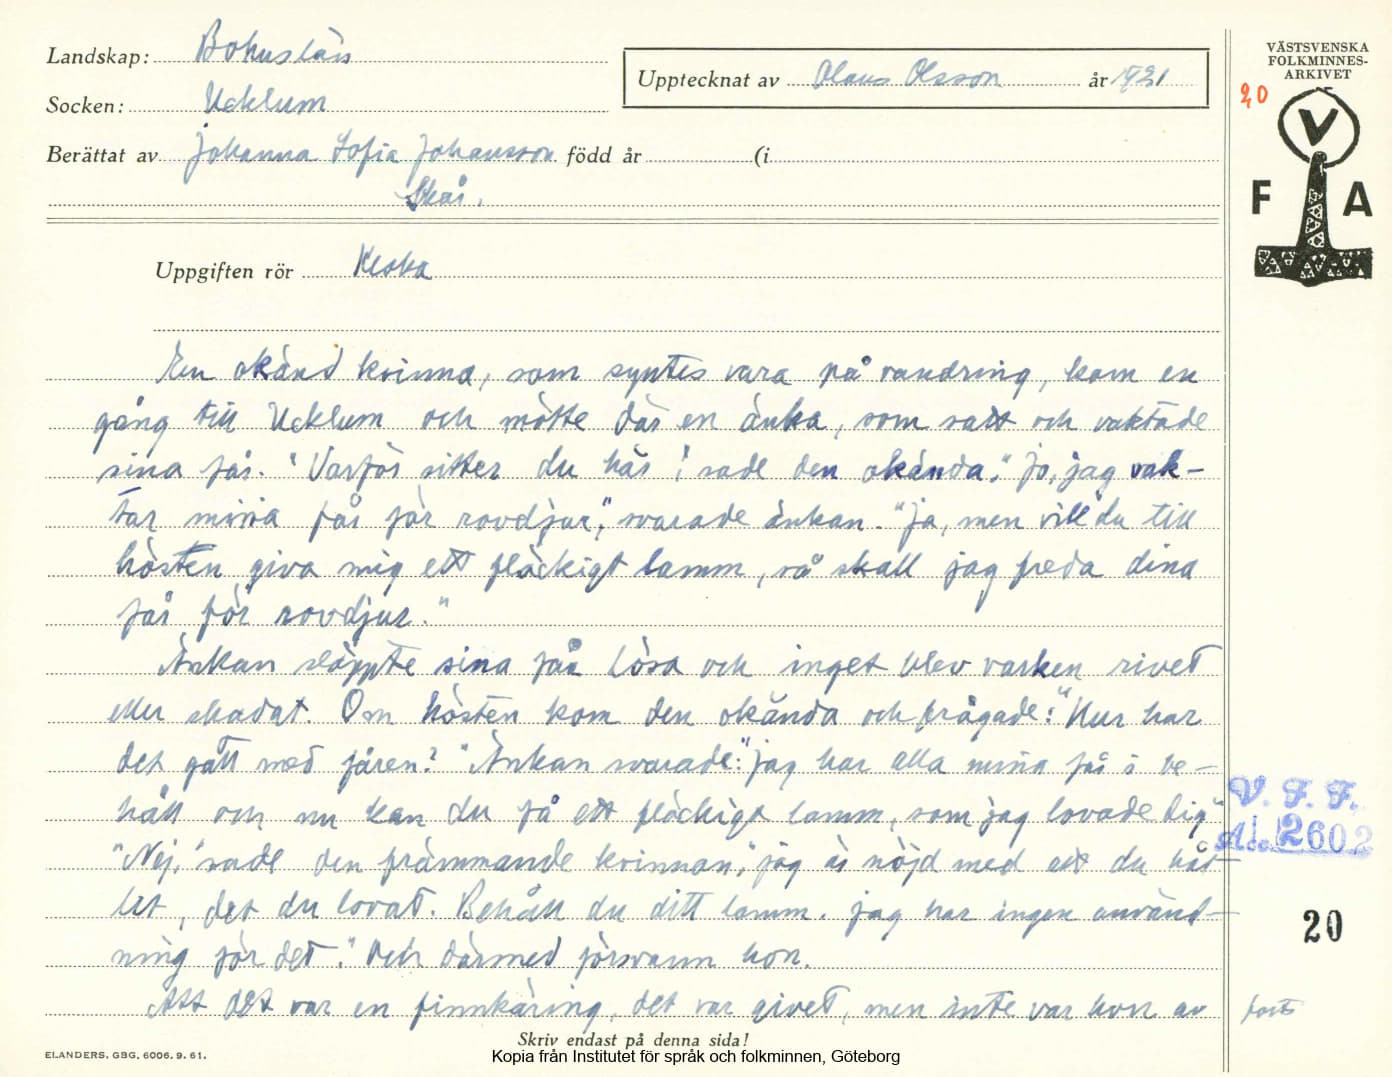 Landskap: Bohuslän
Socken: Ucklum
Upptecknat av Olaus Olsson år 1921
Berättat av Johanna Sofia Johansson född år (i
Skår.
Uppgiften rör Kloka
VÄSTSVENSKA
FOLKMINNES-
ARKIVET
20
V
F A
En okänd kvinna, som syntes vara på vandring, kom en
gång till Ucklum och mötte där en änka, som satt och vaktade
sina får. "Varför sitter du här", sade den okända. "Jo, jag vak-
tar mina får för rovdjur", svarade änkan. "Ja, men vill du till
hösten giva mig ett fläckigt lamm, så skall jag freda dina
får för rovdjur."
Änkan släppte sina får lösa och inget blev varken rivet
eller skadat. Om hösten kom den okända och frågade: "Hur har
det gått med fåren?" Änkan svarade: "Jag har alla mina får i be-
håll och nu kan du få ett fläckigt lamm, som jag lovade dig."
"Nej," sade den främmande kvinnan, "jag är nöjd med att du hål-
let, det du lovat. Behåll du ditt lamm. Jag har ingen använd-
ning för det." Och därmed försvann hon.
Att det var en finnkäring, det var givet, men inte var hon av
forts
V. F. F.
Acc. 2602
20
Skriv endast på denna sida!
ELANDERS. GBG. 6006. 9. 61.
Kopia från Institutet för språk och folkminnen, Göteborg